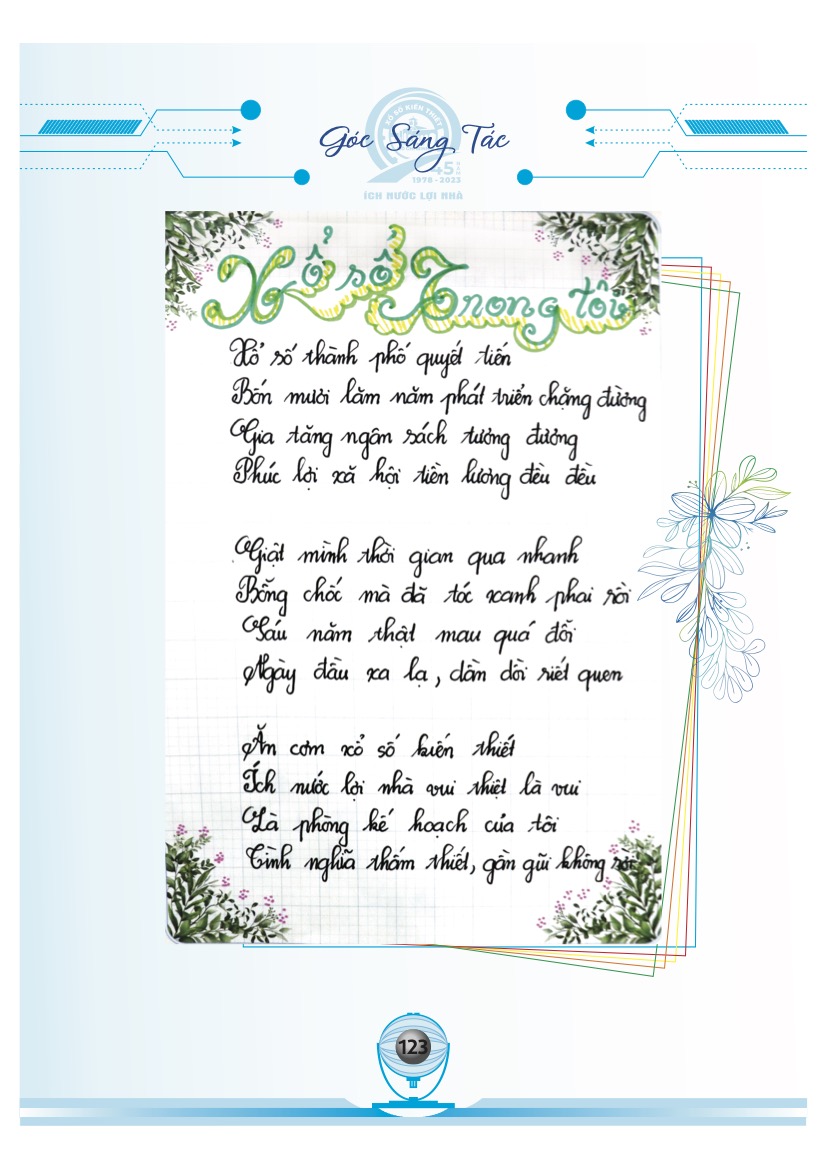 XỔ SỐ KIẾN THIẾT
Góc Sáng Tác
45 NĂM
1978 - 2023
ÍCH NƯỚC LỢI NHÀ
Xổ số Trong tôi
Xổ số thành phố quyết tiến
Bốn mươi lăm năm phát triển chặng đường
Gia tăng ngân sách tưởng đương
Phúc lợi xã hội tiền lương đều đều
Giật mình thời gian qua nhanh
Bỗng chốc mà đã tóc xanh phai rồi
Sáu năm thật mau quá đỗi
Ngày đầu xa lạ, dần dồi riết quen
Ăn cơm xổ số kiến thiết
Ích nước lợi nhà vui thiệt là vui
Là phòng kế hoạch của tôi
Tình nghĩa thắm thiết, gần gũi không rời
123